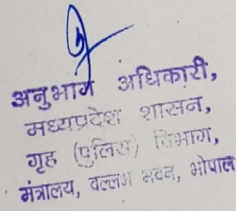 अनुभाग अधिकारी,
मध्यप्रदेश शासन,
गृह (पुलिस) विभाग,
मंत्रालय, वल्लभ भवन, भोपाल